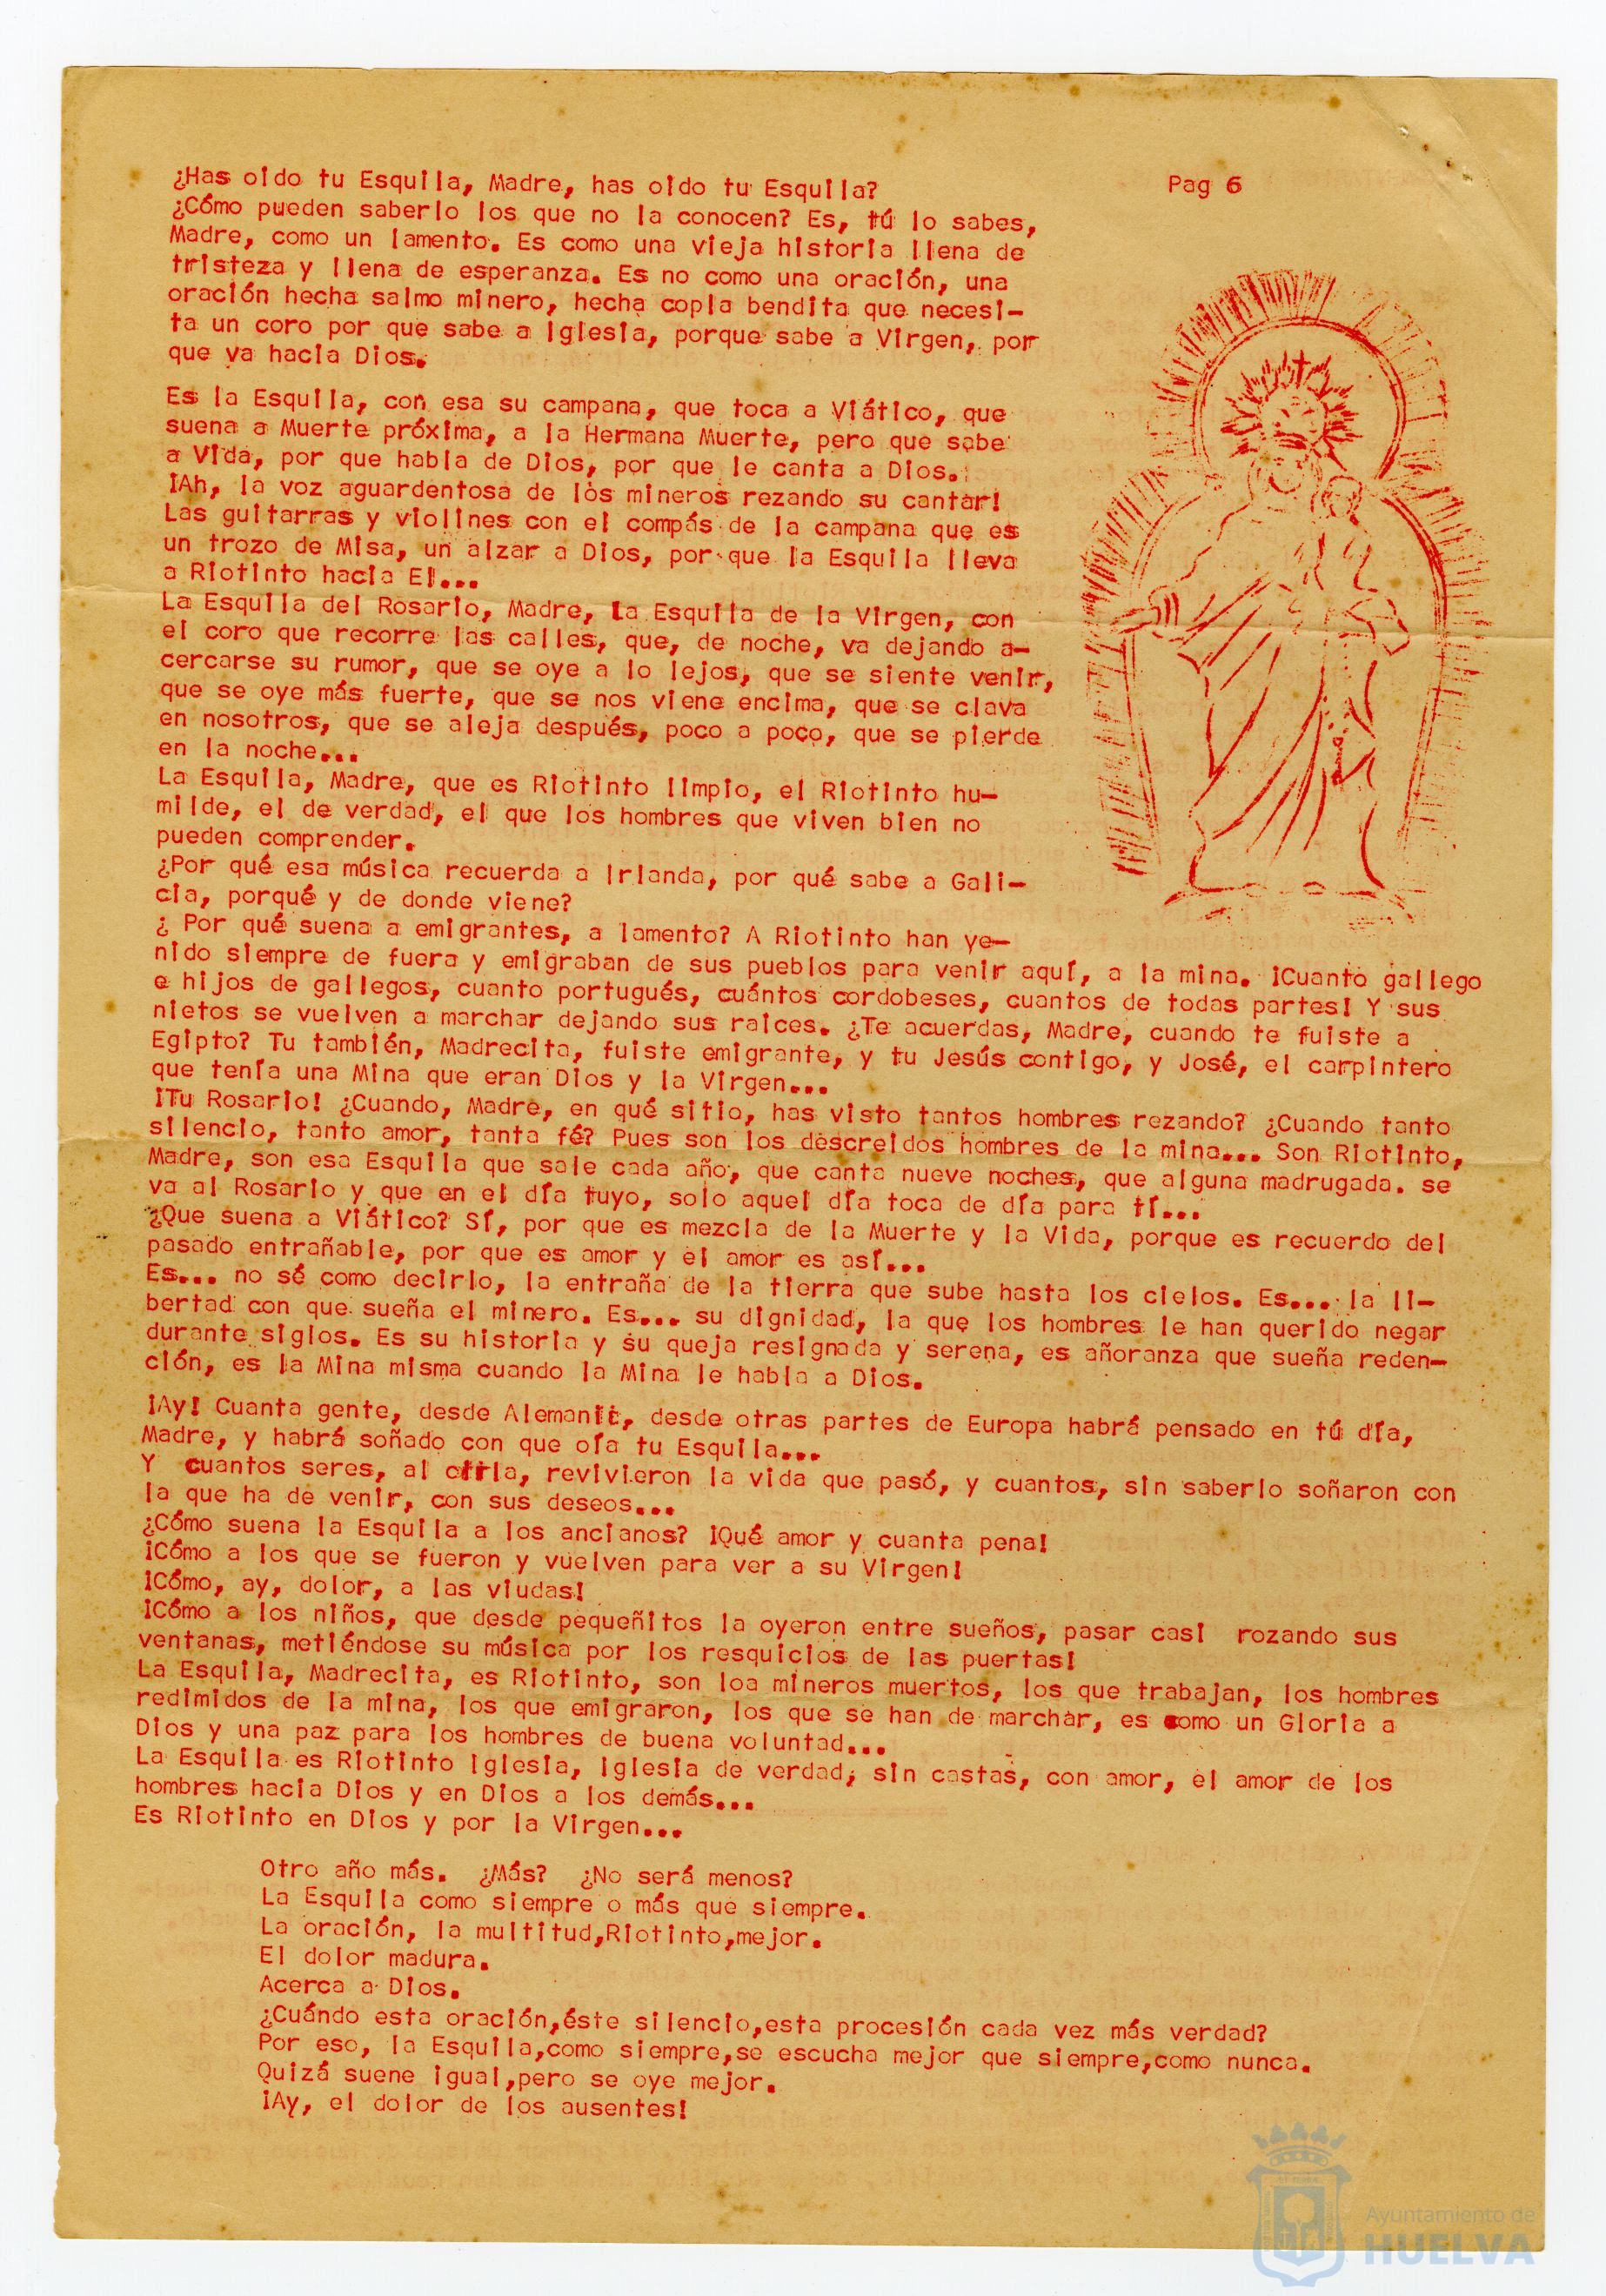 Pag 6
¿Has oido tu Esquila, Madre, has oido tu Esquila?
¿Cómo pueden saberlo los que no la conocen? Es, tú lo sabes,
Madre, como un lamento. Es como una vieja historia llena de
tristeza y llena de esperanza. Es no como una oración, una
oración hecha salmo minero, hecha copla bendita que necesi-
ta un coro por que sabe a Iglesia, porque sabe a Virgen, por
que va hacia Dios.
Es la Esquila, con esa su campana, que toca a Viático, que
suena a Muerte próxima, a la Hermana Muerte, pero que sabe
a Vida, por que habla de Dios, por que le canta a Dios.
¡Ah, la voz aguardentosa de los mineros rezando su cantar!
Las guitarras y violines con el compás de la campana que es
un trozo de Misa, un alzar a Dios, por que la Esquila lleva
a Riotinto hacia El...
La Esquila del Rosario, Madre, La Esquila de la Virgen, con
el coro que recorre las calles, que, de noche, va dejando a-
cercarse su rumor, que se oye a lo lejos, que se siente venir,
que se oye más fuerte, que se nos viene encima, que se clava
en nosotros, que se aleja después, poco a poco, que se pierde
en la noche...
La Esquila, Madre, que es Riotinto limpio, el Riotinto hu-
milde, el de verdad, el que los hombres que viven bien no
pueden comprender.
¿Por qué esa música recuerda a Irlanda, por qué sabe a Gali-
cia, porqué y de donde viene?
¿ Por qué suena a emigrantes, a lamento? A Riotinto han ve-
nido siempre de fuera y emigraban de sus pueblos para venir aquí, a la mina. ¡Cuanto gallego
e hijos de gallegos, cuanto portugués, cuántos cordobeses, cuantos de todas partes! Y sus
nietos se vuelven a marchar dejando sus raices. ¿Te acuerdas, Madre, cuando te fuiste a
Egipto? Tu también, Madrecita, fuiste emigrante, y tu Jesús contigo, y José, el carpintero
que tenía una Mina que eran Dios y la Virgen...
¡Tu Rosario! ¿Cuando, Madre, en qué sitio, has visto tantos hombres rezando? ¿Cuando tanto
silencio, tanto amor, tanta fé? Pues son los descreidos hombres de la mina... Son Riotinto,
Madre, son esa Esquila que sale cada año, que canta nueve noches, que alguna madrugada. se
va al Rosario y que en el día tuyo, solo aquel día toca de día para tí...
¿Que suena a Viático? Sí, por que es mezcla de la Muerte y la Vida, porque es recuerdo del
pasado entrañable, por que es amor y el amor es así...
Es... no sé como decirlo, la entraña de la tierra que sube hasta los cielos. Es... la li-
bertad con que sueña el minero. Es... su dignidad, la que los hombres le han querido negar
durante siglos. Es su historia y su queja resignada y serena, es añoranza que sueña reden-
ción, es la Mina misma cuando la Mina le habla a Dios.
¡Ay! Cuanta gente, desde desde otras partes de Europa habrá pensado en tú día,
Madre, y habrá soñado con que oía tu Esquila...
Y cuantos seres, al revivieron la vida que pasó, y cuantos, sin saberlo soñaron con
la que ha de venir, con sus deseos...
¿Cómo suena la Esquila a los ancianos? ¡Qué amor y cuanta pena!
¡Cómo a los que se fueron y vuelven para ver a su Virgen!
¡Cómo, ay, dolor, a las viudas!
¡Cómo a los niños, que desde pequeñitos la oyeron entre sueños, pasar casi rozando sus
ventanas, metiéndose su música por los resquicios de las puertas!
La Esquila, Madrecita, es Riotinto, son loa mineros muertos, los que trabajan, los hombres
redimidos de la mina, los que emigraron, los que se han de marchar, es como un Gloria a
Dios y una paz para los hombres de buena voluntad...
La Esquila es Riotinto Iglesia, Iglesia de verdad, sin castas, con amor, el amor de los
hombres hacia Dios y en Dios a los demás...
Es Riotinto en Dios y por la Virgen...
Otro año más. ¿Más? ¿No será menos?
La Esquila como siempre o más que siempre.
La oración, la multitud,Riotinto,mejor.
El dolor madura.
Acerca a Dios.
¿Cuándo esta oración,éste silencio,esta procesión cada vez más verdad?
Por eso, la Esquila,como siempre,se escucha mejor que siempre,como nunca.
Quizá suene igual,pero se oye mejor.
¡Ay, el dolor de los ausentes!
Ayuntamiento de
HUELVA